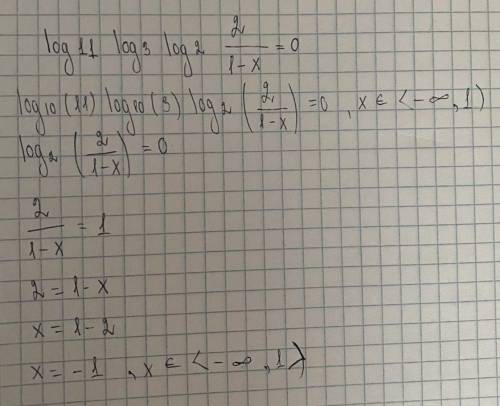 log 11 log 3 log 2 2/(1-x) = 0
log10 (11) log10 (3) log2 (2/(1-x)) = 0 , x ∈ <-∞, 1)
log2 (2/(1-x)) = 0
2/(1-x) = 1
2 = 1-x
x = 1-2
x = -1 , x ∈ <-∞, 1>